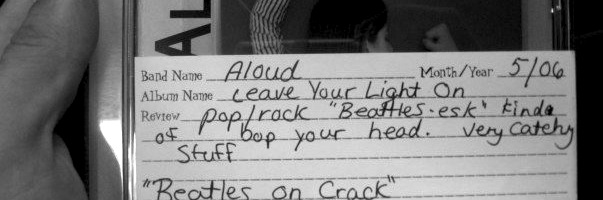 AL
Band Name Aloud Month/Year 5/06
Album Name Leave Your Light On
Review pop/rock "Beatles-esk" kinda
of bop your head. very catchy
stuff
"Beatles on Crack"